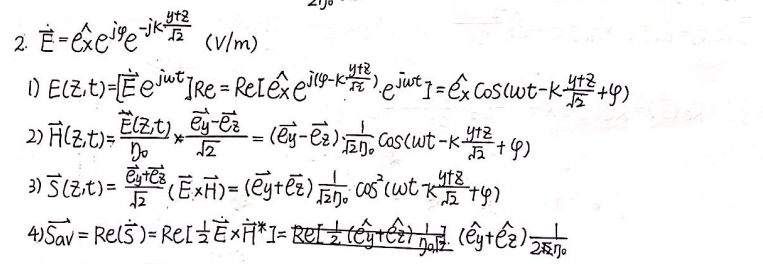 2. \vec{\dot{E}} = \hat{e_x} e^{jφ} e^{-jk\frac{y+z}{\sqrt{2}}} (V/m)
1) E(z,t) = [\vec{\dot{E}} e^{jωt}]Re = Re[\hat{e_x} e^{j(φ-k\frac{y+z}{\sqrt{2}})} · e^{jωt}] = \hat{e_x} cos(ωt-k\frac{y+z}{\sqrt{2}}+φ)
2) \vec{H}(z,t) = \frac{\vec{E}(z,t)}{η_0} × \frac{\vec{e_y}-\vec{e_z}}{\sqrt{2}} = (\vec{e_y}-\vec{e_z}) \frac{1}{\sqrt{2}η_0} cos(ωt-k\frac{y+z}{\sqrt{2}}+φ)
3) \vec{S}(z,t) = \frac{\vec{e_y}+\vec{e_z}}{\sqrt{2}} (\vec{E}×\vec{H}) = (\vec{e_y}+\vec{e_z}) \frac{1}{\sqrt{2}η_0} cos^2(ωt-k\frac{y+z}{\sqrt{2}}+φ)
4) \vec{S_{av}} = Re(\dot{S}) = Re[\frac{1}{2}\vec{\dot{E}}×\vec{H}^*] = (\hat{e_y}+\hat{e_z}) \frac{1}{2\sqrt{2}η_0}